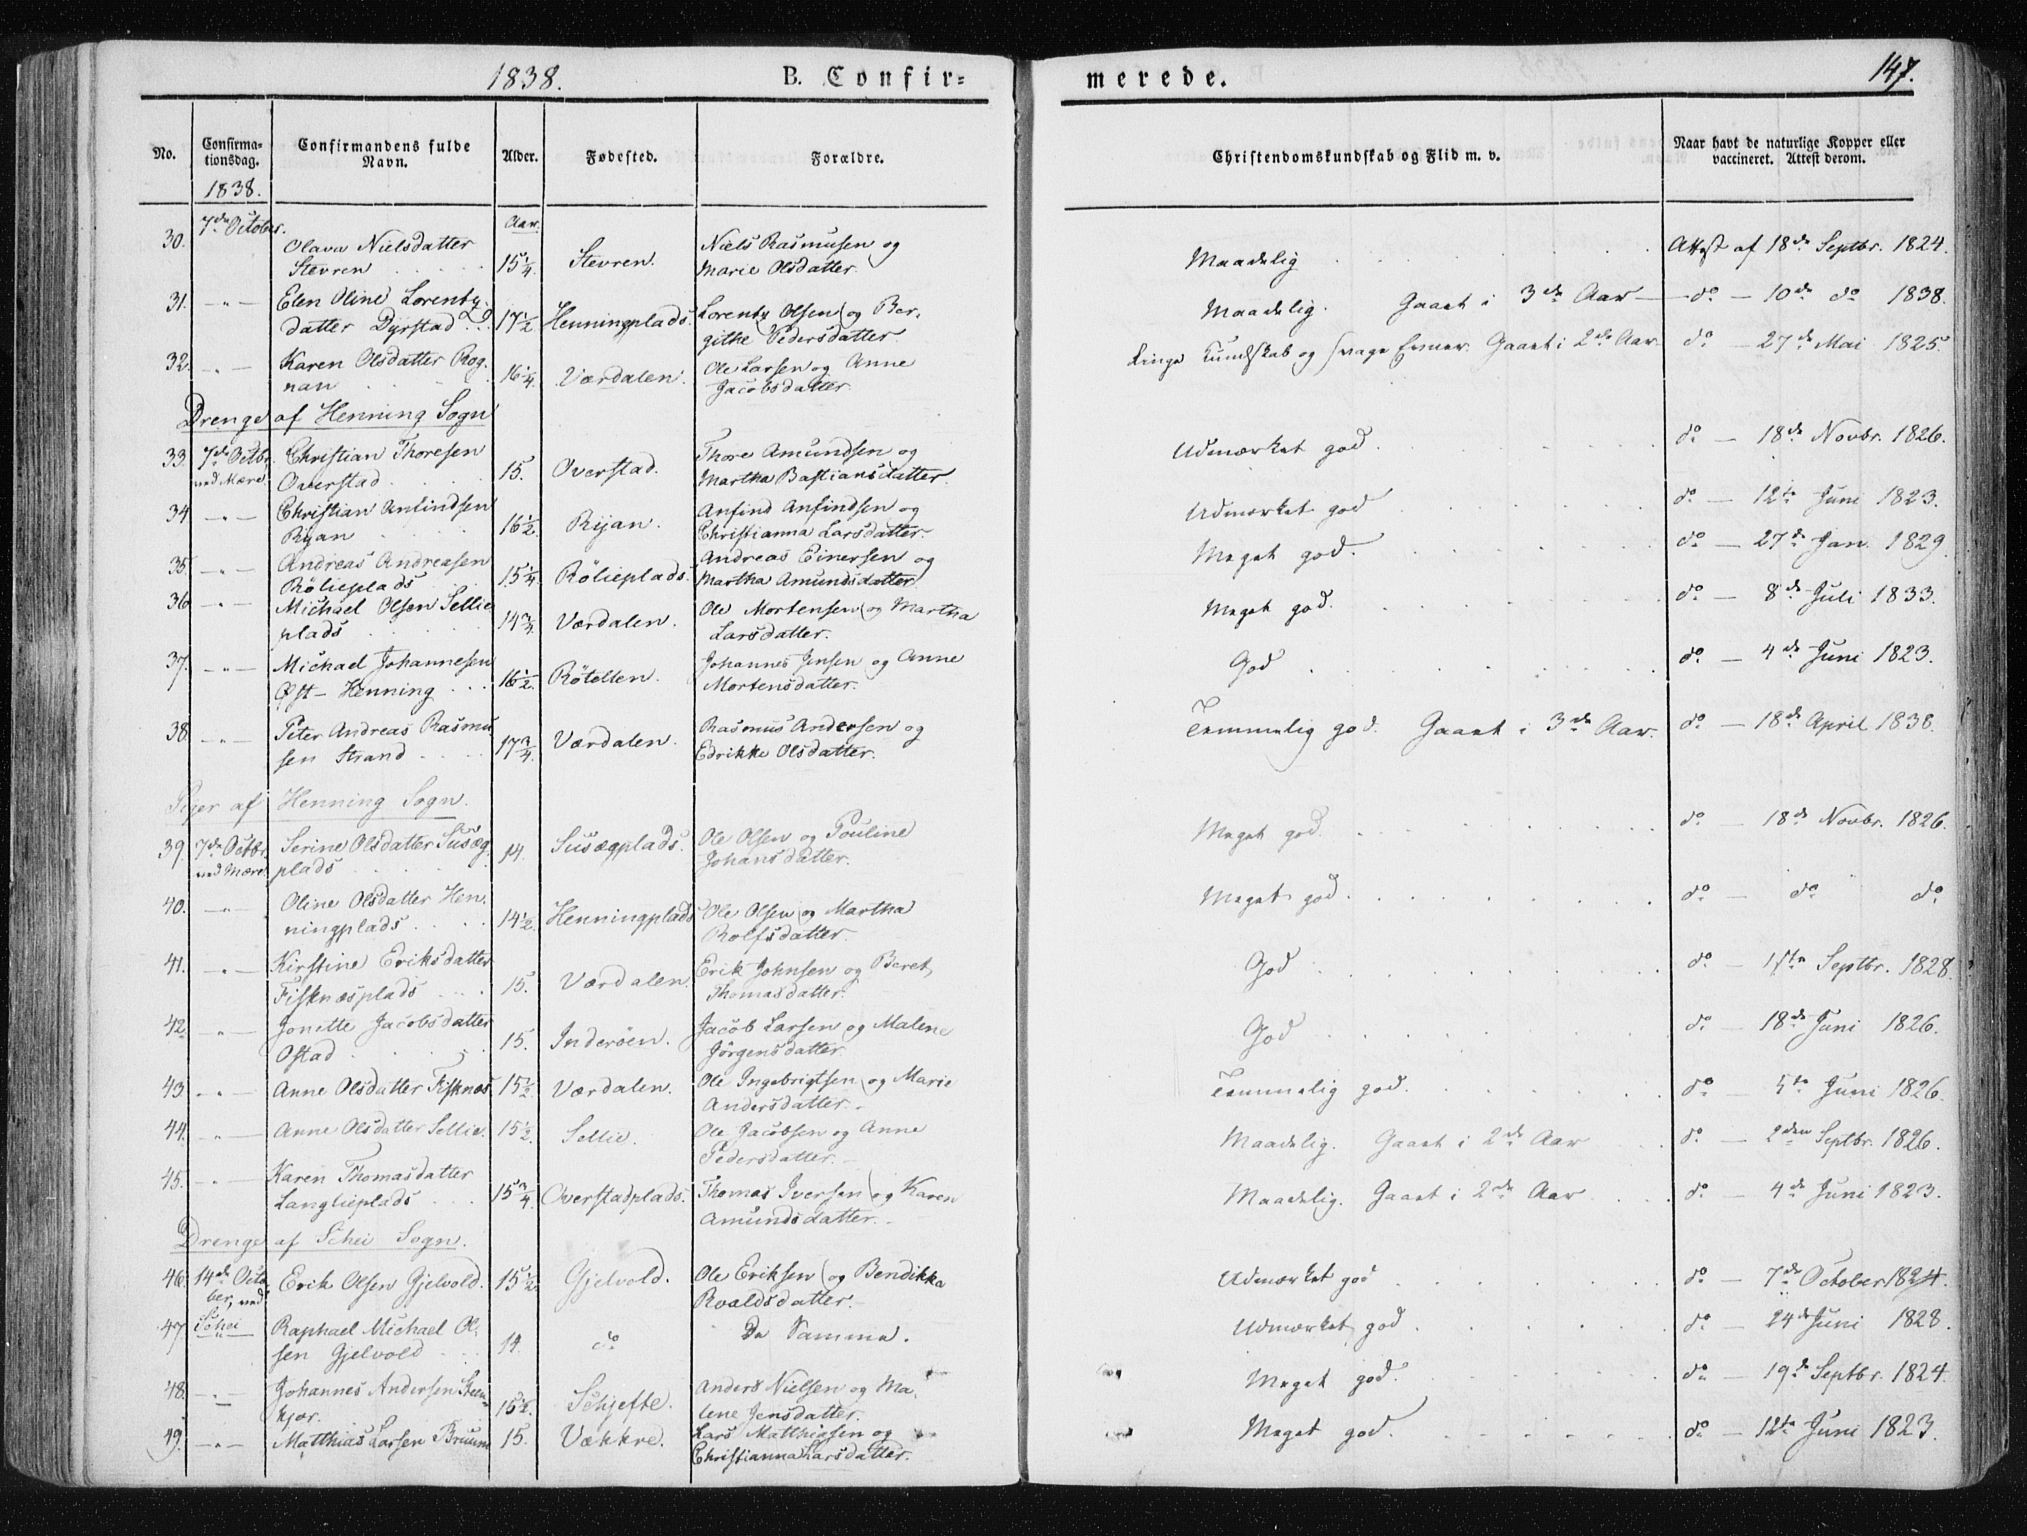 1838. B. Confir= merede. 147.
No. Confirma-tionsdag. Confirmandens fulde Navn. Alder. Fødested. Forældre. Christendomskundskab og Flid m. v. Naar havt de naturlige Kopper eller vaccineret. Attest derom.
1838.
7de October. Aar.
30. Olava Nielsdatter 15 1/4. Stevren. Niels Rasmusen og Maadelig Attest af 18de Septbr. 1824.
Stevren Marie Olsdatter.
31. -"- Elen Oline Lorentz- 17 1/2 Henningplads. Lorentz Olsen og Ber- Maadelig. Gaaet i 3de Aar do - 10de do 1838.
datter Dyrstad githe Pedersdatter.
32. -"- Karen Olsdatter Rog- 16 1/4. Værdalen. Ole Larsen og Anne Ringe Kundskab og svage Evner. Gaaet i 2de Aar. do - 27de Mai 1825.
nan Jacobsdatter.
Drenge af Henning Sogn
33. 7de Octbr. Christian Thoresen 15. Overstad. Thore Amundsen og Udmærket god. do - 18de Novbr. 1826.
ved Mære. Overstad Martha Bastiansdatter.
34 -"- Christian Anfindsen 16 1/2 Ryan. Anfind Anfindsen og Udmærket god do - 12te Juni 1823.
Ryan Christianna Larsdatter.
35. -"- Andreas Andreasen 15 1/4 Rölieplads. Andreas Einersen og Meget god. do - 27de Jan. 1829.
Rölieplads Martha Amundsdatter
36 -"- Michael Olsen Sellie 14 3/4 Værdalen. Ole Mortensen og Martha Meget god. do - 8de Juli 1833.
plads Larsdatter.
37. -"- Michael Johannesen 16 1/2. Rötelten. Johannes Jensen og Anne God do - 4de Juni 1823.
Øst- Henning Mortensdatter.
38. -"- Peter Andreas Rasmu 17 3/4. Værdalen. Rasmus Andersen og Temmelig god. Gaaet i 3de Aar. do - 18de April 1838.
sen Strand Edrikke Olsdatter.
Piger af Henning Sogn.
39. 7de Octbr. Serine Olsdatter Susæg- 14. Susægplads. Ole Olsen og Pouline Meget god. do - 18de Novbr. 1826.
ved Mære. plads Johansdatter.
40. -"- Oline Olsdatter Hen- 14 1/2. Henningplads Ole Olsen og Martha Meget god. do - do do
ningplads Rolfsdatter.
41. -"- Kirstine Eriksdatter 15. Værdalen. Erik Johnsen og Beret God do - 1ste Septbr. 1828.
Fisknæsplads Thomasdatter.
42. -"- Jonette Jacobsdatter 15. Inderöen. Jacob Larsen og Malene God do - 18de Juni 1826.
Ostad Jörgensdatter
43 -"- Anne Olsdatter Fisknæs 15 1/2 Værdalen. Ole Ingebrigtsen og Marie Temmelig god. do - 5te Juni 1826.
Andersdatter.
44. -"- Anne Olsdatter Sellie. 15 1/2. Sellie. Ole Jacobsen og Anne Maadelig. Gaaet i 2de Aar do - 2den Septbr. 1826.
Pedersdatter.
45. -"- Karen Thomasdatter 15 3/4 Overstadplads. Thomas Iversen og Karen Maadelig. Gaaet i 2de Aar do - 4de Juni 1823.
Langlieplads Amundsdatter.
Drenge af Schei Sogn.
46. 14de Octo- Erik Olsen Gjelvold. 15 1/2. Gjelvold. Ole Eriksen og Bendikka Udmærket god do - 7de October 1824.
ber, ved Roaldsdatter.
47 Schei Raphael Michael Ol- 14. do De Samme. Udmærket god do - 24de Juni 1828.
sen Gjelvold
48. -"- Johannes Andersen Steen- 15 1/2. Schjefte. Anders Nielsen og Ma- Meget god. do - 19de Septbr. 1824.
kjer. lene Jensdatter.
49. -"- Matthias Larsen Bruum 15. Vækkre. Lars Matthiasen og Meget god. do - 12te Juni 1823.
Christianna Larsdatter.